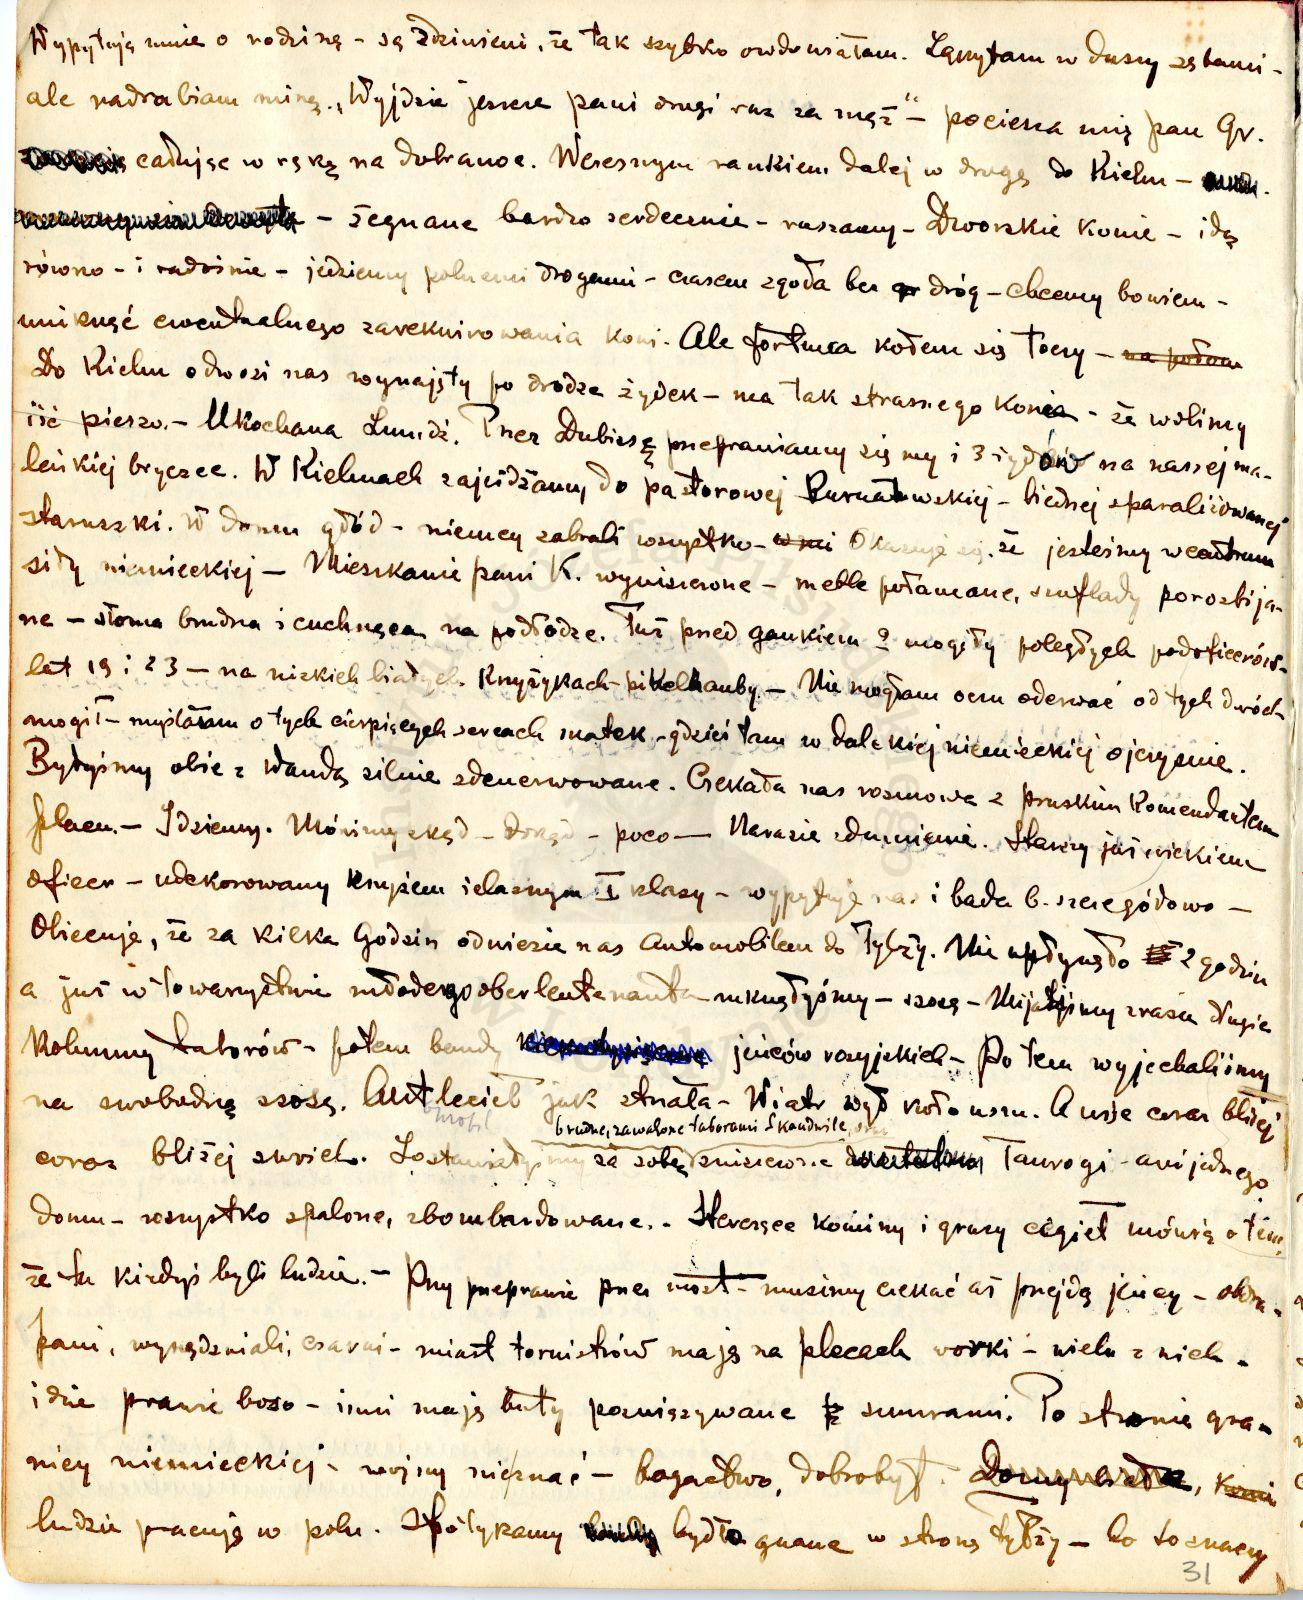 Wypytują mnie o rodzinę – są zdziwieni, że tak szybko owdowiałam. Zgrzytam w duszy zębami –
ale nadrabiam miną. „Wyjdzie jeszcze pani drugi raz za mąż” – pociesza mię pan Gr.
całując w rękę na dobranoc. Wczesnym rankiem dalej w drogę do Kielm –
– żegnane bardzo serdecznie – ruszamy – Dworskie konie – idą
równo – i radośnie – jedziemy polnemi drogami – czasem zgoła bez gr dróg – chcemy bowiem –
uniknąć ewentualnego zarekwirowania koni. Ale fortuna kołem się toczy – na połam
Do Kielm odwozi nas wynajęty po drodze żydek – ma tak strasznego konia – że wolimy
iść pieszo. – Ukochana Żmudź. Przez Dubissę przeprawiamy się my i 3 żydów na naszej ma-
leńkiej bryczce. W Kielmach zajeżdżamy do pastorowej Kurnatowskiej – biednej sparaliżowanej
staruszki. W domu głód – niemcy zabrali wszystko – Okazuje się, że jesteśmy w centrum
siły niemieckiej – Mieszkanie pani K. wyniszczone – meble połamane, szuflady porozbija-
ne – słoma brudna i cuchnąca na podłodze. Tuż przed gankiem 2 mogiły poległych podoficerów –
let 19 i 23 – na nizkich białych Krzyżykach – pikelhauby. – Nie mogłam oczu oderwać od tych dwóch
mogił – myślałam o tych cierpiących sercach matek – gdzieś tam w dalekiej niemieckiej ojczyźnie.
Byłyśmy obie z Wandą silnie zdenerwowane. Czekała nas rozmowa z pruskim Komendantem
placu. – Idziemy. Mówimy skąd – dokąd – poco – Narazie zdumienie. Starszy już wiekiem
oficer – udekorowany krzyżem żelaznym I klasy – wypytuje nas i bada b. szczegółowo –
Obiecuje, że za kilka godzin odwiezie nas automobilem do Tylży. Nie upłynęło 2 godzin
a już w towarzystwie młodego oberleutenanta – mknęłyśmy – szosą – Mijałyśmy zrazu długie
Kolumny taborów – potem bandy jeńców rosyjskich – Potem wyjechaliśmy
na swobodną szosę. Aut leciał jak strzała – Wiatr wył koło uszu. A wsie coraz bliżej
brudne, zawalone taborami Skaudwile,
coraz bliżej swiet. Zostawiałyśmy za sobą zniszczone Taurogi – ani jednego
domu – wszystko spalone, zbombardowane. – Sterczące kominy i gruzy cegieł mówią o tem,
że tu kiedyś byli ludzie. – Przy przeprawie przez most – musimy czekać aż przejdą jeńcy – obdra-
pani, wynędzniali, czarni – miast tornistrów mają na plecach worki – wielu z nich –
idzie prawie boso – inni mają buty pozwiązywane sznurami. Po stronie gra-
nicy niemieckiej – wojny nieznać – bogactwo, dobrobyt. Domy, konie
ludzie pracują w polu. Spotykamy bydło gnane w stronę Tylży – to to znaczy
31